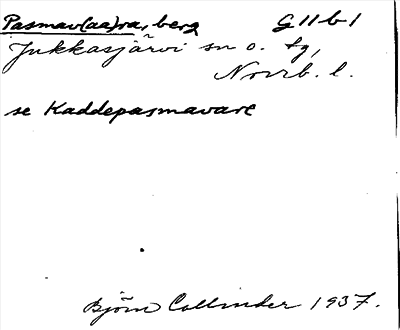 Pasmav(aa)ra, berg G 11 b 1
Jukkasjärvi sn o. tg,
Norrb. l.
se Kaddepasmavare
Björn Collinder 1937.